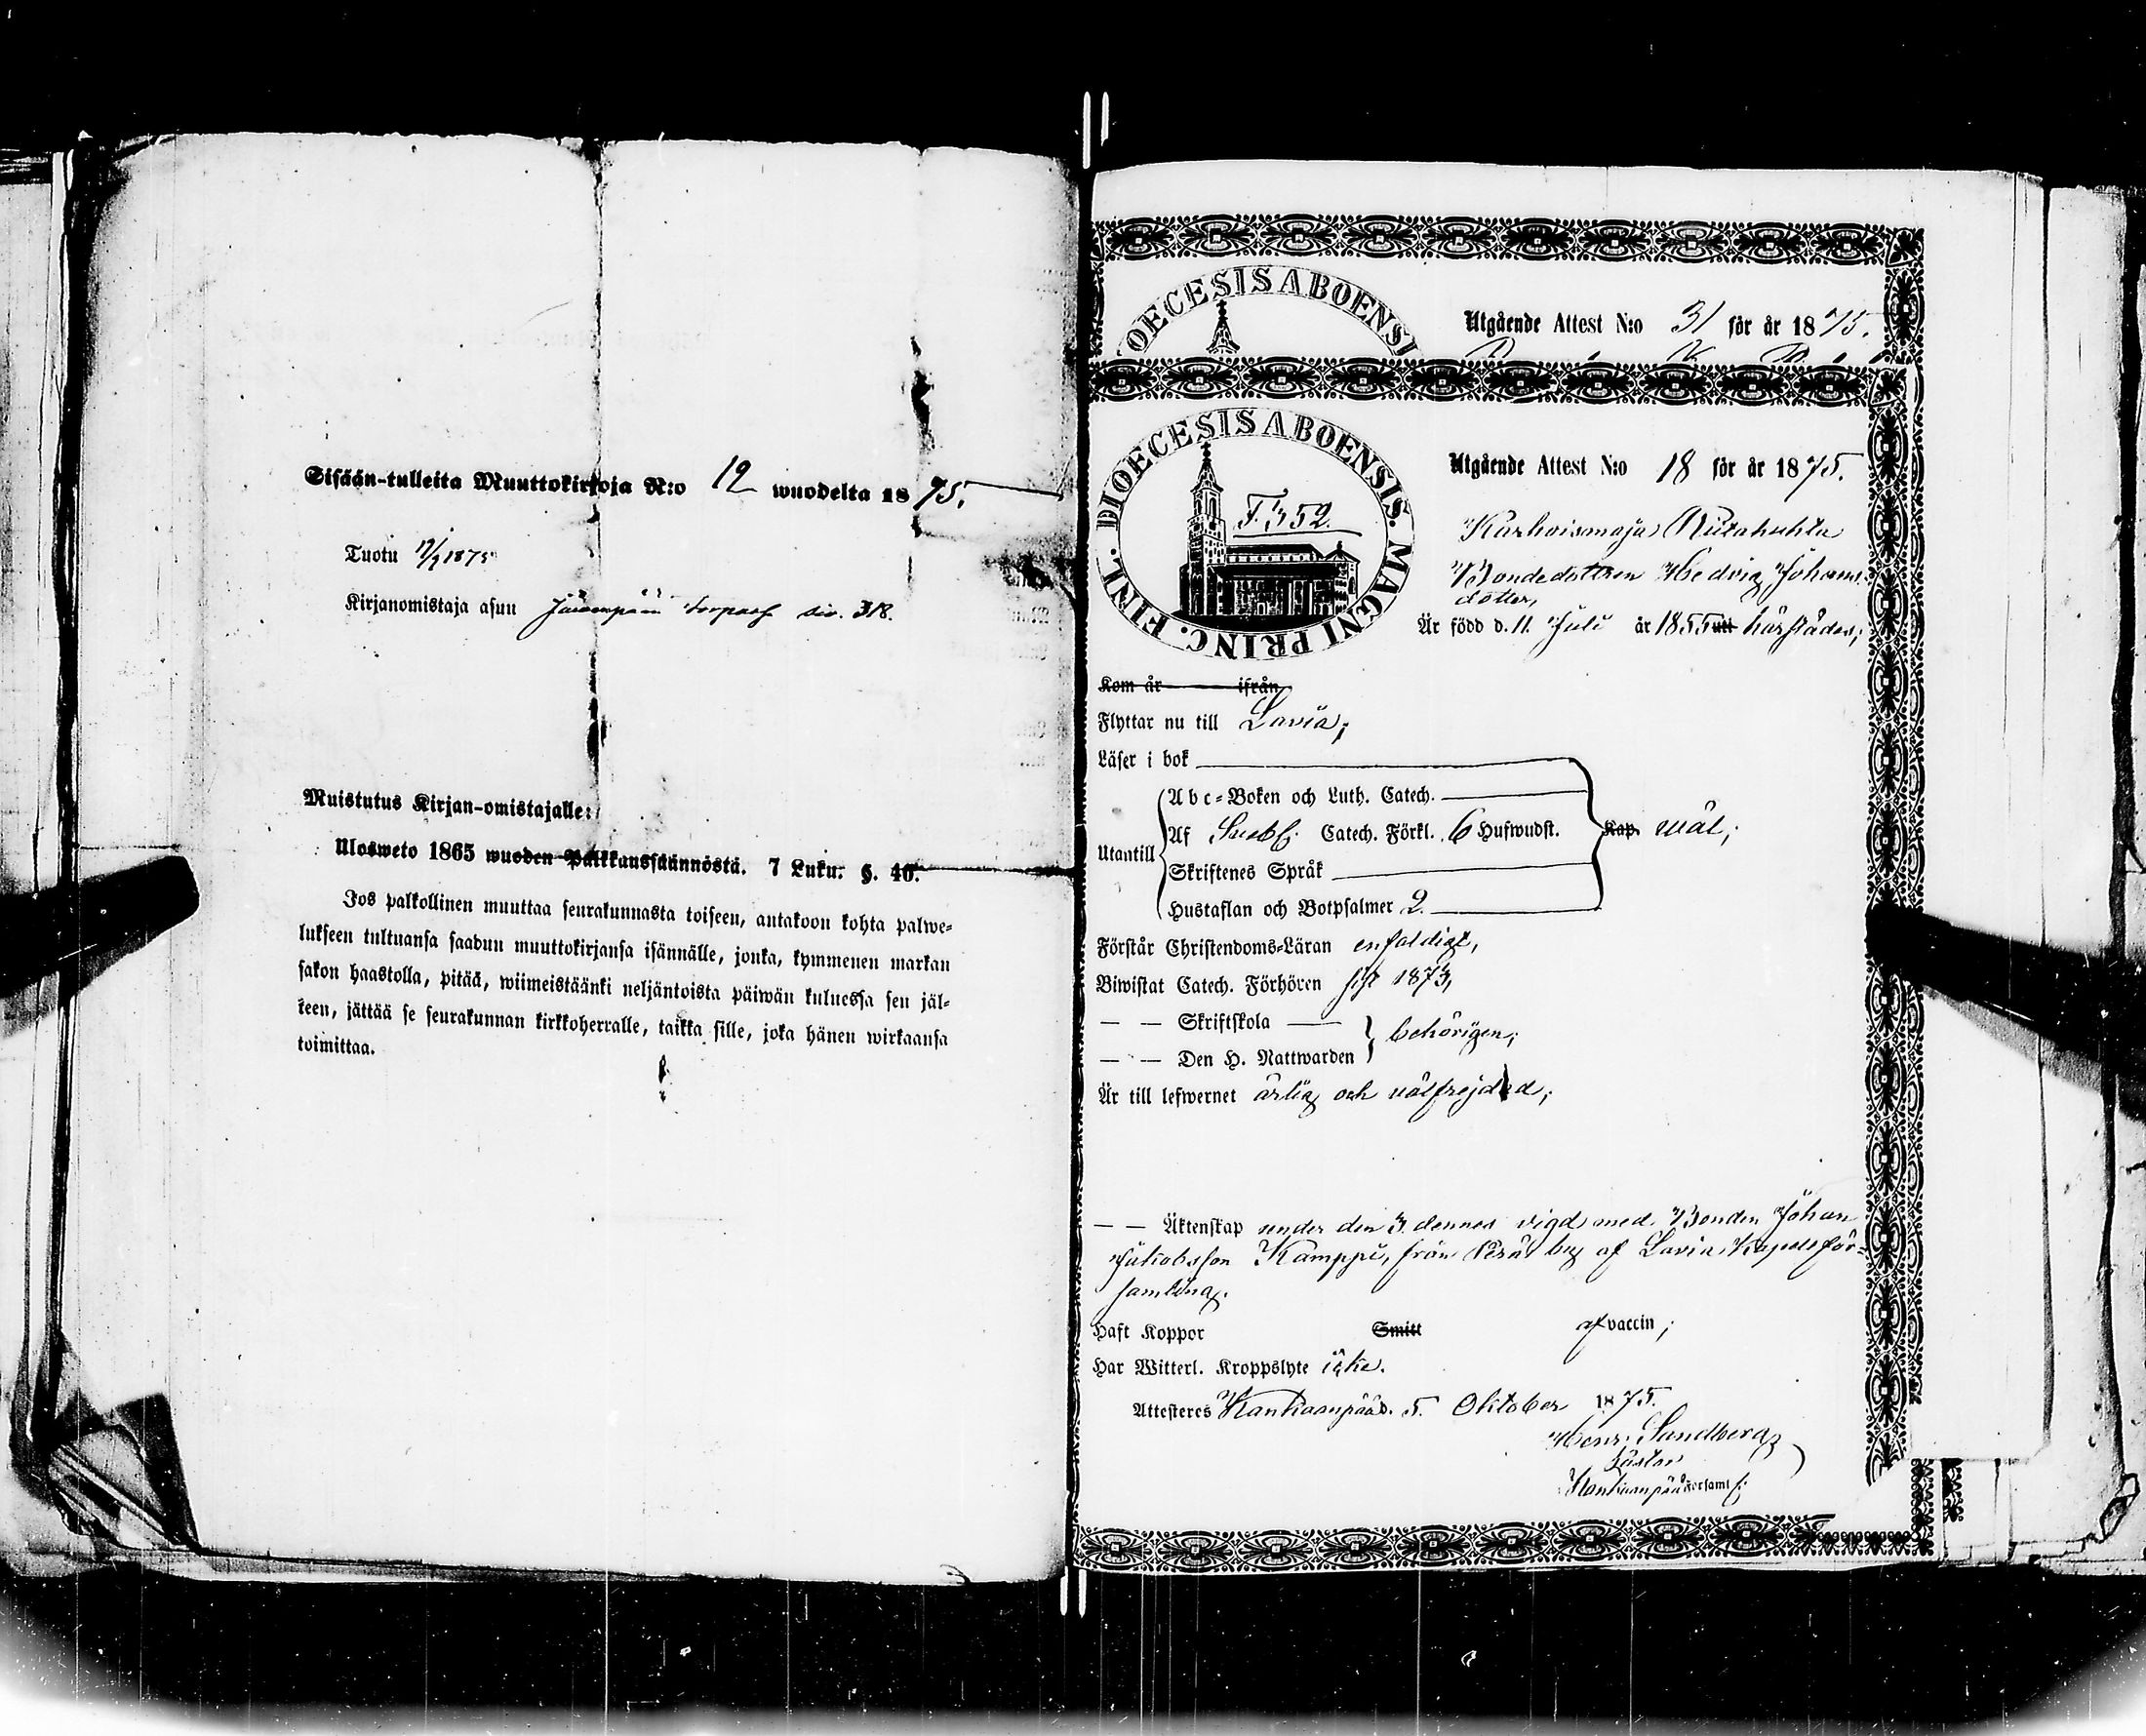 Sisään-tulleita Muuttokirjoja N:o 12 wuodelta 1875.
Tuotu 17/9 1875
Kirjanomistaja asuu Jäwenpää torpass siv. 318.
Muistutus Kirjan-omistajalle:
Ulosweto 1865 wuoden Palkkaussäännöstä. 7 Luku. §. 40.
Jos palkollinen muuttaa seurakunnasta toiseen, antakoon kohta palwe-
lukseen tultuansa saadun muuttokirjansa isännälle, jonka, kymmenen markan
sakon haastolla, pitää, wiimeistäänki neljäntoista päiwän kuluessa sen jäl-
keen, jättää se seurakunnan kirkkoherralle, taikka sille, joka hänen wirkaansa
toimittaa.
DIOECESIS ABOENSIS
Utgående Attest N:o 31 för år 1875.
DIOECESIS ABOENSIS. MAGNI PRINC. FINL.
F. 352.
Utgående Attest N:o 18 för år 1875.
Karhoismaja
Bondedottren Hedvig Johans-
dotter,
Är född d. 11. Juli år 1855 uti härstädes;
Kom år ifrån
Flyttar nu till Lavia;
Läser i bok
Utantill
Abc-Boken och Luth. Catech.
Af Sveb. Catech. Förkl. 6 Hufwudst.
Kap. wäl;
Skriftenes Språk
Hustaflan och Botpsalmer 2.
Förstår Christendoms-Läran enfaldigt,
Biwistat Catech. Förhören sist 1873,
— — Skriftskola —
behörigen;
— — Den H. Nattwarden
Är till lefwernet ärlig och välfrejdad;
— — Äktenskap under den 3 dennes vigd med Bonden Johan
Jakobsson Kamppi, från Perä by af Lavia Kapellför-
samling.
Haft Koppor Smitt af vaccin;
Har Witterl. Kroppslyte icke.
Attesteres Kankaanpää d. 5. Oktober 1875.
Henr. Sandberg
Pastor
Kankaanpää Församl.